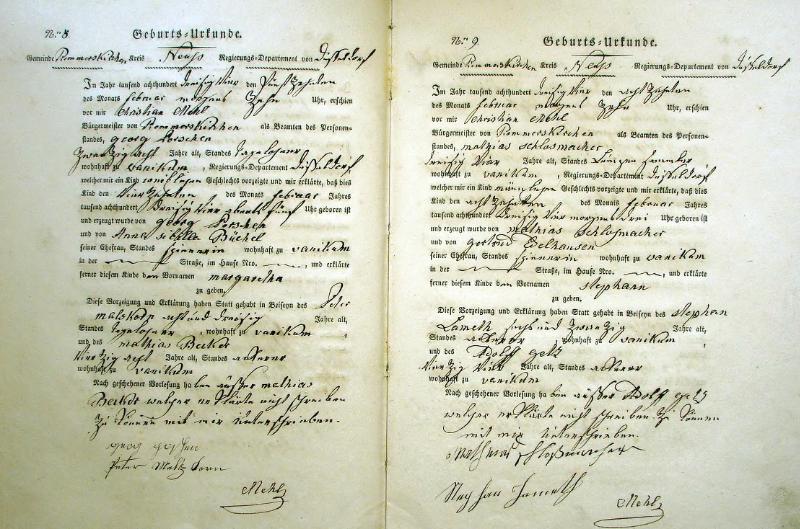 Nro 8 Geburts-Urkunde.
Gemeinde Rommerskirchen Kreis Neuß Regierungs-Departement von Düsseldorf
Im Jahr tausend achthundert dreißig vier den fünfzehnten
des Monats februar morgens Zehn Uhr, erschien
vor mir Christian Mehl
Bürgermeister von Rommerskirchen als Beamten des Personen-
standes, georg
Zwanzig acht Jahre alt, Standes Tagelöhner
wohnhaft zu vanikum, Regierungs-Departement Düsseldorf
welcher mir ein Kind weiblichen Geschlechts vorzeigte und mir erklärte, daß dies
Kind den vierzehnten des Monats februar Jahres
tausend achthundert dreißig vier abents fünf Uhr geboren ist
und erzeugt wurde von georg
und von Anna Sibilla Büchel
seiner Ehefrau, Standes spinnerin wohnhaft zu vanikum
in der Straße, im Hause Nro. und erklärte
ferner diesem Kinde den Vornamen margaretha
zu geben.
Diese Vorzeigung und Erklärung haben Statt gehabt in Beiseyn des Peter
acht und dreißig Jahre alt,
Standes Tagelöhner, wohnhaft zu vanikum
und des mathias
vierzig acht Jahre alt, Standes ackerer
wohnhaft zu vanikum
Nach geschehener Vorlesung haben außer mathias
welcher erklärte nicht schreiben
zu können mit mir unterschrieben.
georg
Peter
Mehl
Nro 9 Geburts-Urkunde.
Gemeinde Rommerskirchen Kreis Neuß Regierungs-Departement von Düsseldorf
Im Jahr tausend achthundert dreißig vier den achtzehnten
des Monats februar morgens Zehn Uhr, erschien
vor mir Christian Mehl
Bürgermeister von Rommerskirchen als Beamten des Personen-
standes, mathias schlosmacher
dreißig vier Jahre alt, Standes
wohnhaft zu vanikum, Regierungs-Departement Düsseldorf
welcher mir ein Kind männlichen Geschlechts vorzeigte und mir erklärte, daß dies
Kind den achtzehnten des Monats februar Jahres
tausend achthundert dreißig vier morgens drei Uhr geboren ist
und erzeugt wurde von mathias schlosmacher
und von gertrud Eelhausen
seiner Ehefrau, Standes spinnerin wohnhaft zu vanikum
in der Straße, im Hause Nro. und erklärte
ferner diesem Kinde den Vornamen stephann
zu geben.
Diese Vorzeigung und Erklärung haben Statt gehabt in Beiseyn des stephan
Lameth sechs und zwanzig Jahre alt,
Standes ackerer wohnhaft zu vanikum
und des Adolf getz
vierzig vier Jahre alt, Standes ackerer
wohnhaft zu vanikum
Nach geschehener Vorlesung haben außer Adolf getz
welcher erklärte nicht schreiben zu können
mit mir unterschrieben.
Mathias
Lameth
Mehl